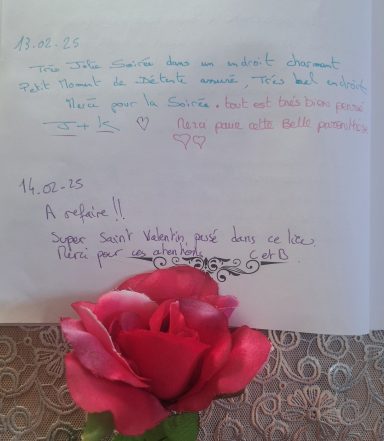 13.02.25
Très Jolie Soirée dans un endroit charmant
Petit Moment de Détente assuré, Très bel endroit
Merci pour la Soirée. tout est très bien pensé
J + K ♡ Merci pour cette Belle parenthèse
♡♡
14.02.25
A refaire !!
Super Saint Valentin passé dans ce lieu.
Merci pour ces attentions C et B.